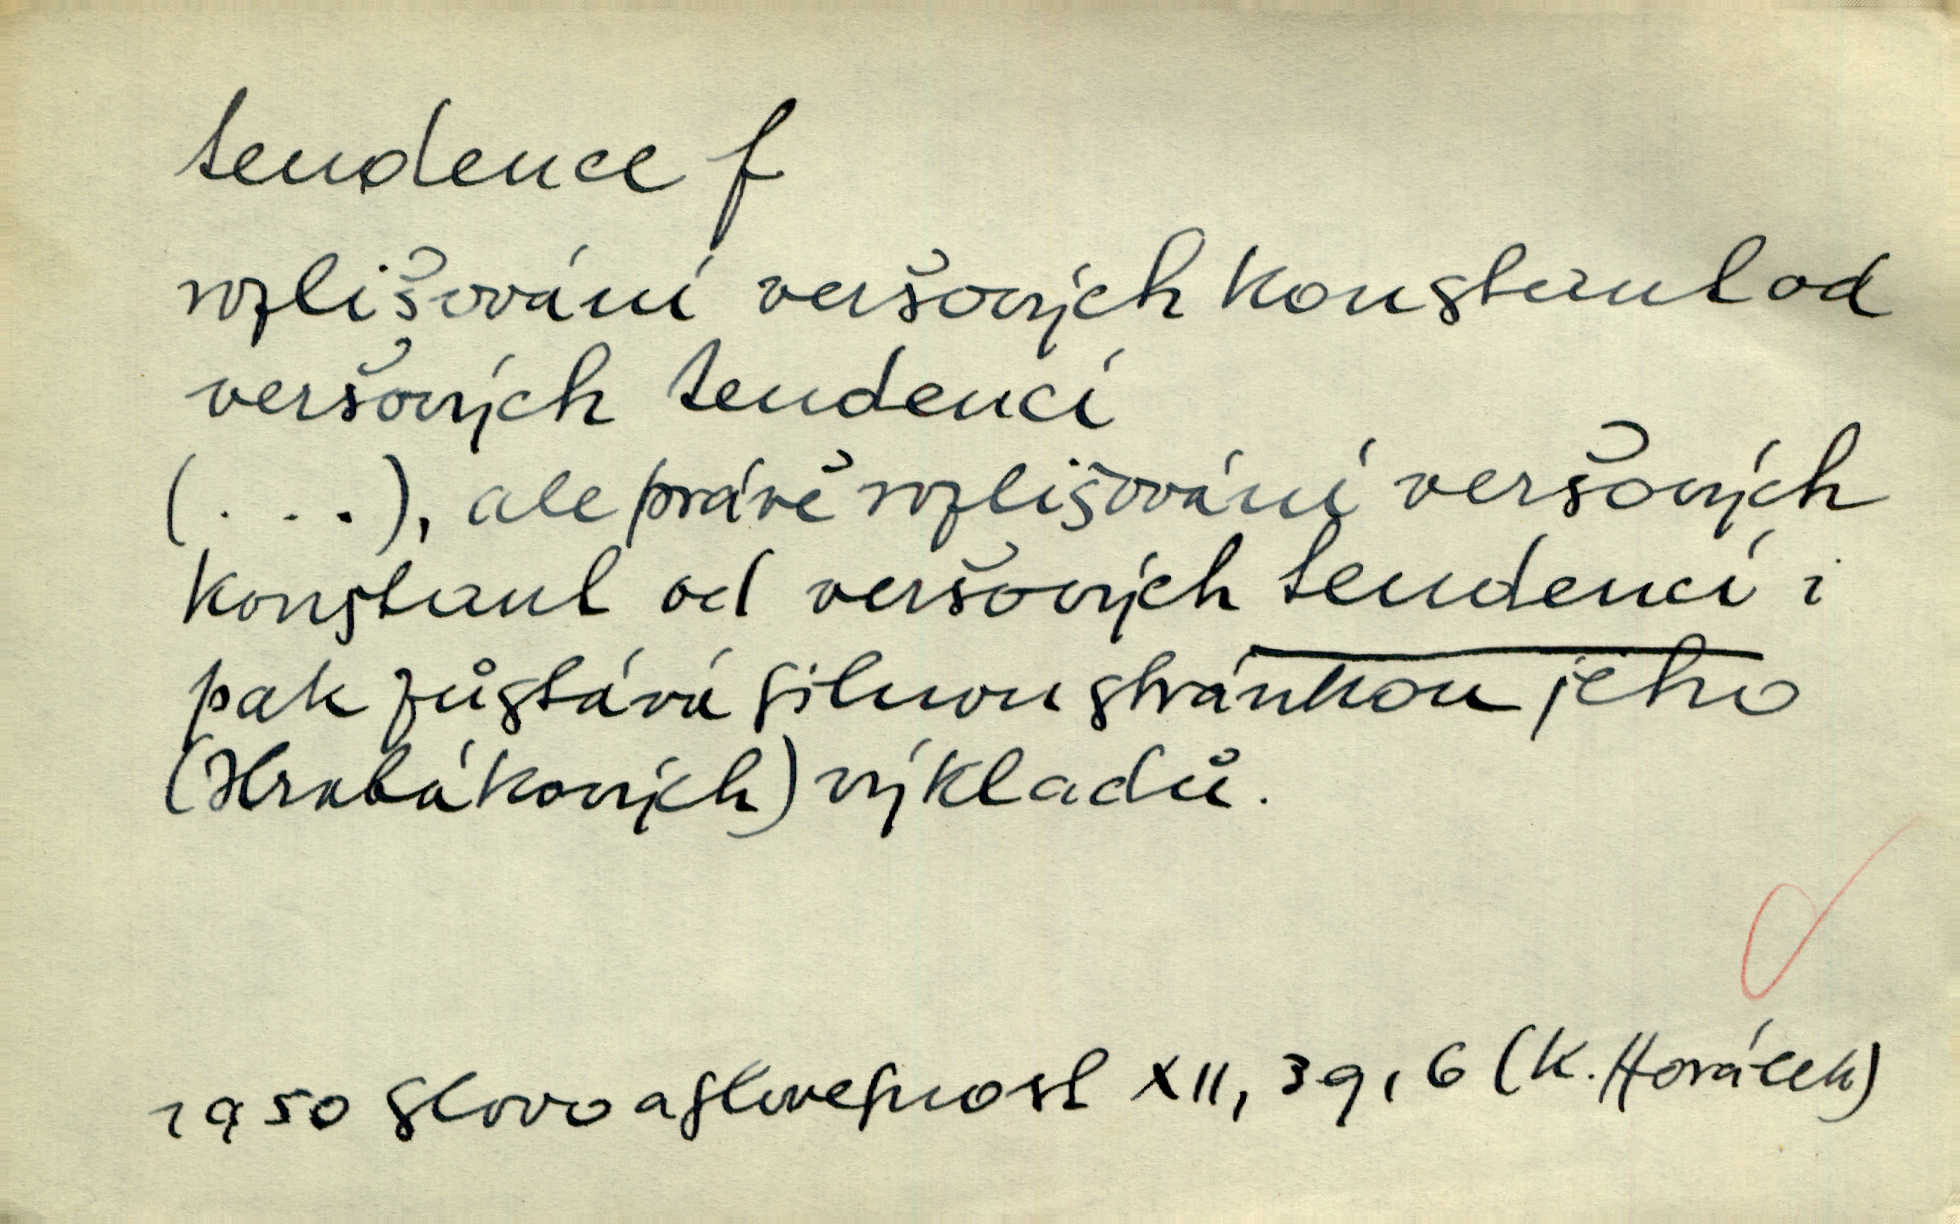 tendence f
rozlišování veršových konstant od
veršových tendencí
(...), ale právě rozlišování veršových
konstant od veršových tendencí i
pak zůstává silnou stránkou jeho
(Hrabákových) výkladů.
1950 Slovo a slovesnost XII, 39, 6 (K. Horálek)